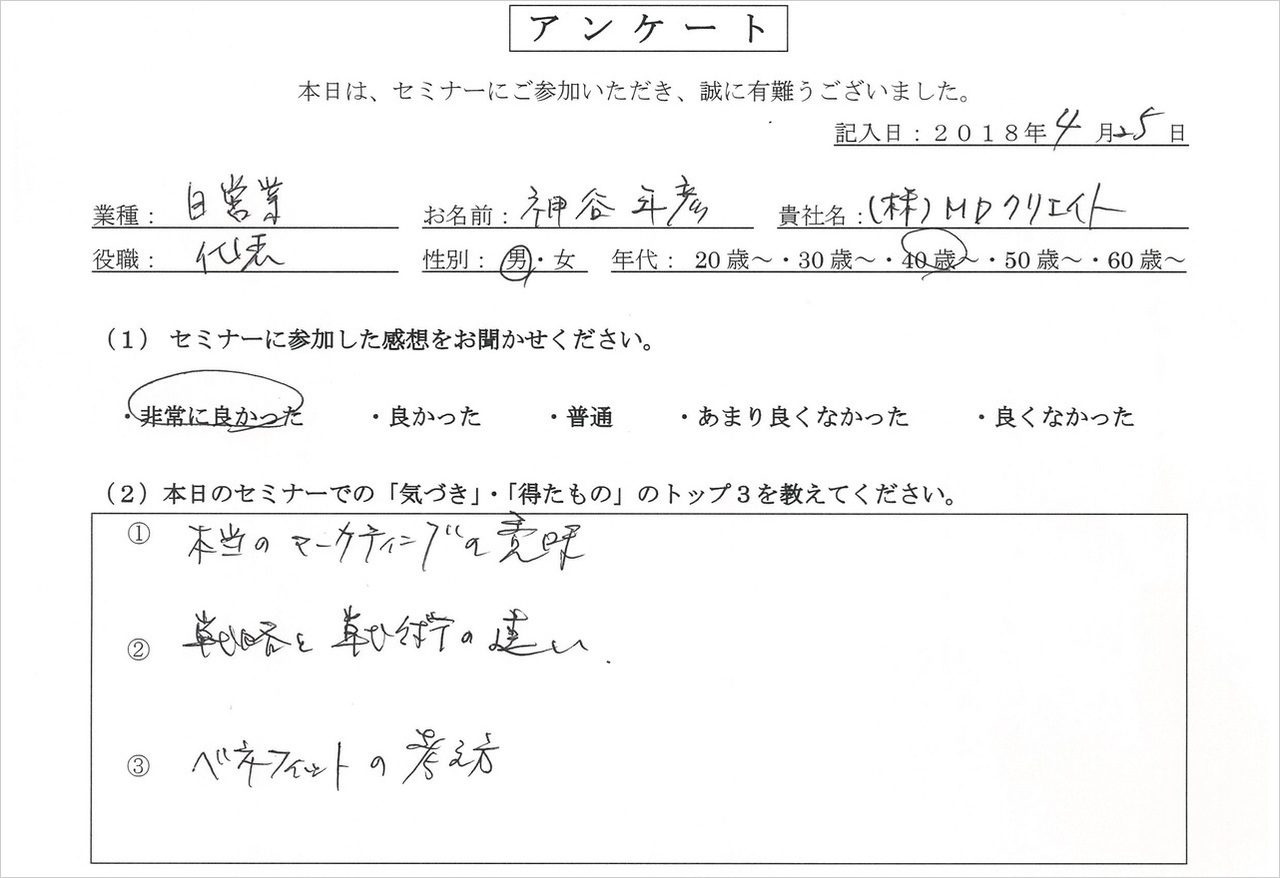 アンケート
本日は、セミナーにご参加いただき、誠に有難うございました。
記入日：２０１８年 4 月 25 日
業種： 自営業 お名前： 神谷 年彦 貴社名： (株)MDクリエイト
役職： 代表 性別： 男・女 年代： 20歳～・30歳～・40歳～・50歳～・60歳～
（１） セミナーに参加した感想をお聞かせください。
・非常に良かった ・良かった ・普通 ・あまり良くなかった ・良くなかった
（２）本日のセミナーでの「気づき」・「得たもの」のトップ３を教えてください。
① 本当のマーケティングの意味
② 戦略と戦術の違い.
③ ベネフィットの考え方